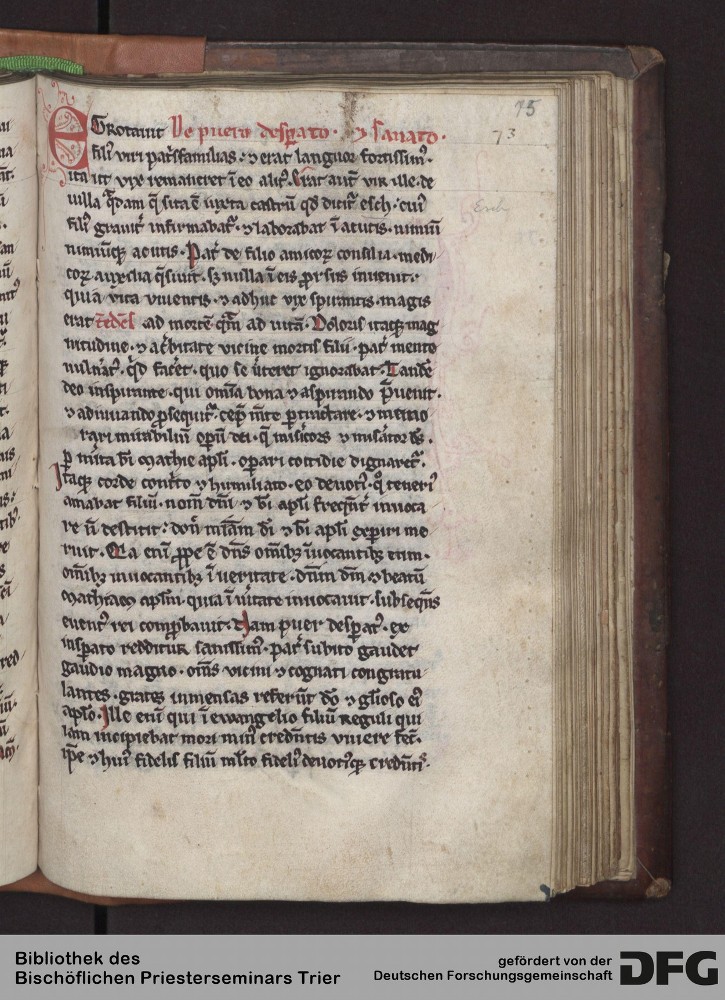 75
73
EGrotauit De puero desꝑato · ⁊ sanato ·
fili᷒ viri pat̄sfamilias · ⁊ erat languor fortissim᷒ ·
ita ut vix remaneret ī eo alit᷒ · Erat aut̄ vir ille de
uilla q̄dam q̄ sita ē iuxta castrū qd̄ dicit᷑ esch · cui᷒
Esch
fili᷒ grauit᷑ infirmabat᷑ · ⁊ laborabat ī acutis · nimiū
nimiūq; acutis · Pat᷑ de filio amicoꝝ consilia · medi
coꝝ auxilia q̄siuit · sꝫ nulla ī eis ꝓrsus inuenit ·
quia vita viuentis · ⁊ adhuc vix spirantis · magis
erat ad mortē q̄m ad uitā · Doloris itaq; mag
nitudine · ⁊ ac̄bitate vicine mortis filii · pat᷑ mento
uuln̄at᷒ · qd̄ fac̄et · quo se ūteret ignorabat · Tandē
deo inspirante · qui om̄ia bona ⁊ aspirando p̄uenit ·
⁊ adiuuando ꝓsequit᷑ · cep̄ m̄te ꝑtractare · ⁊ memo
rari mirabiliū operū dei · q̄ mis̄icors ⁊ mis̄ator ds̄ ·
ꝑ m̄ita bī Mathie apl̄i · operari cottidie dignaret᷑ ·
Itaq; corde cont̄to ⁊ humiliato · eo deuoti᷒ · qͦ teneri᷒
amabat filiū · nom̄ dn̄i ⁊ bī apl̄i freq̄nt᷑ inuoca
re ñ destitit · don̄ mīam dī ⁊ bī apl̄i experiri me
ruit · Q̄a enī ꝓpe ē dn̄s om̄ibꝫ īuocantibꝫ eum ·
om̄ibꝫ inuocantibꝫ ī veritate · dn̄um dm̄ ⁊ beatū
Mathiam apl̄m · quia ī ūitate inuocauit · subseq̄ns
euent᷒ rei comꝓbauit · Nam puer desꝑat᷒ · ex
insꝑato redditur sanissim᷒ · pat᷑ subito gaudet
gaudio magno · om̄s vicini ⁊ cognati congratu
lantes · grates inmensas referūt dō ⁊ gl̄ioso ei᷒
apl̄o · Ille enī qui ī ewangelio filiū reguli qui
iam incipiebat mori min᷒ cred̄ntis viuere fec̄ ·
ip̄e ⁊ hui᷒ fidelis filiū ml̄to fideli᷒ deuoti᷒q; cred̄nti᷒ ·
Bibliothek des
Bischöflichen Priesterseminars Trier
gefördert von der
Deutschen Forschungsgemeinschaft
DFG